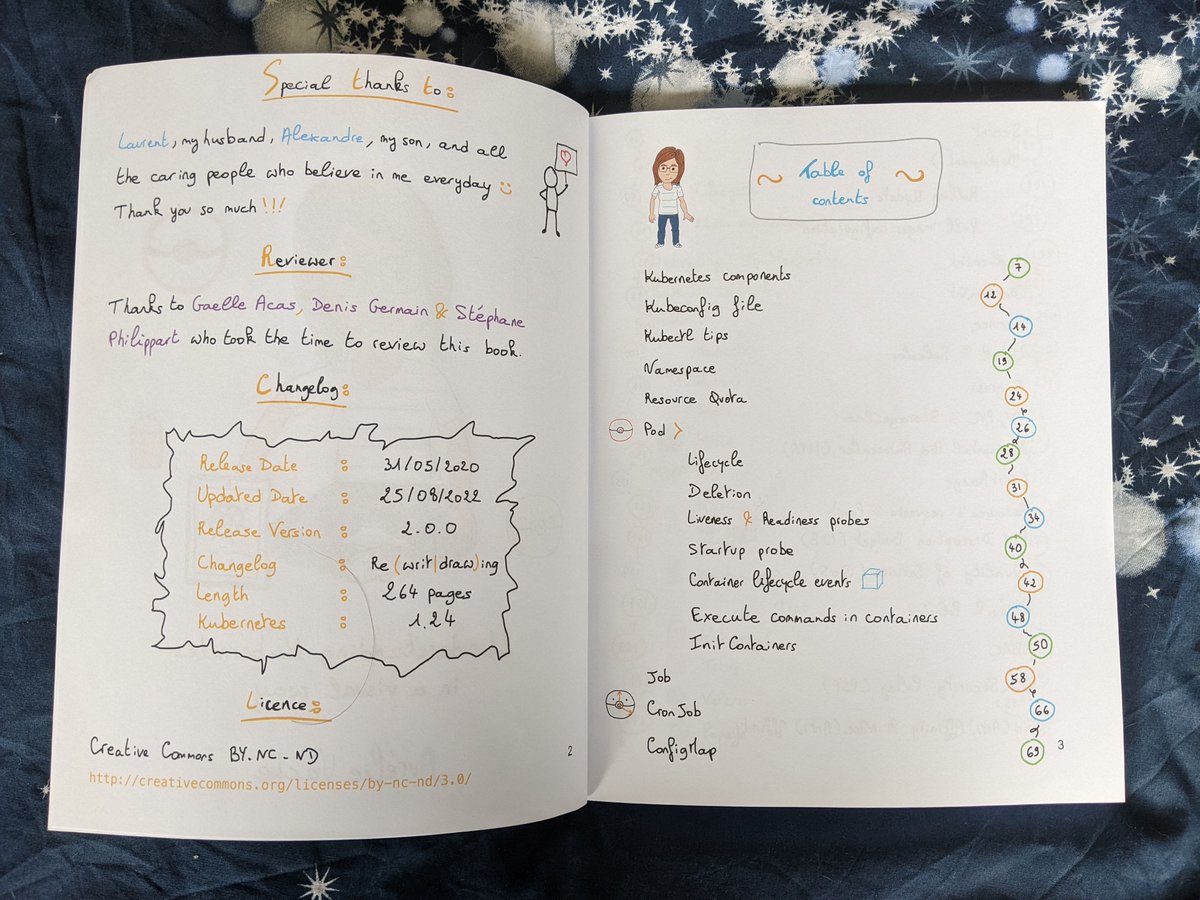 Special thanks to:
Laurent, my husband, Alexandre, my son, and all
the caring people who believe in me everyday
Thank you so much !!!
Reviewer:
Thanks to Gaelle Acas, Denis Germain & Stéphane
Philippart who took the time to review this book.
Changelog:
Release Date : 31/05/2020
Updated Date : 25/08/2022
Release Version : 2.0.0
Changelog : Re(writ|draw)ing
Length : 264 pages
Kubernetes : 1.24
Licence:
Creative Commons BY-NC-ND
http://creativecommons.org/licenses/by-nc-nd/3.0/
2
~ Table of ~
contents
Kubernetes components 7
Kubeconfig file 12
Kubectl tips 14
Namespace 19
Resource Quota 24
Pod > 26
Lifecycle 28
Deletion 31
Liveness & Readiness probes 34
Startup probe 40
Container lifecycle events 42
Execute commands in containers 48
Init Containers 50
Job 58
CronJob 66
ConfigMap 69
3